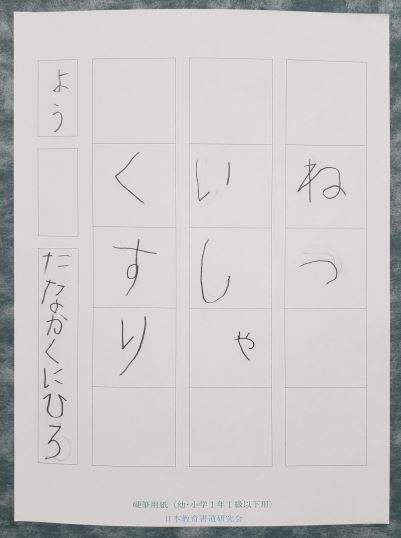 ねつ
いしゃ
くすり
よう
たなかくにひろ
硬筆用紙（幼・小学1年1級以下用）
日本教育書道研究会